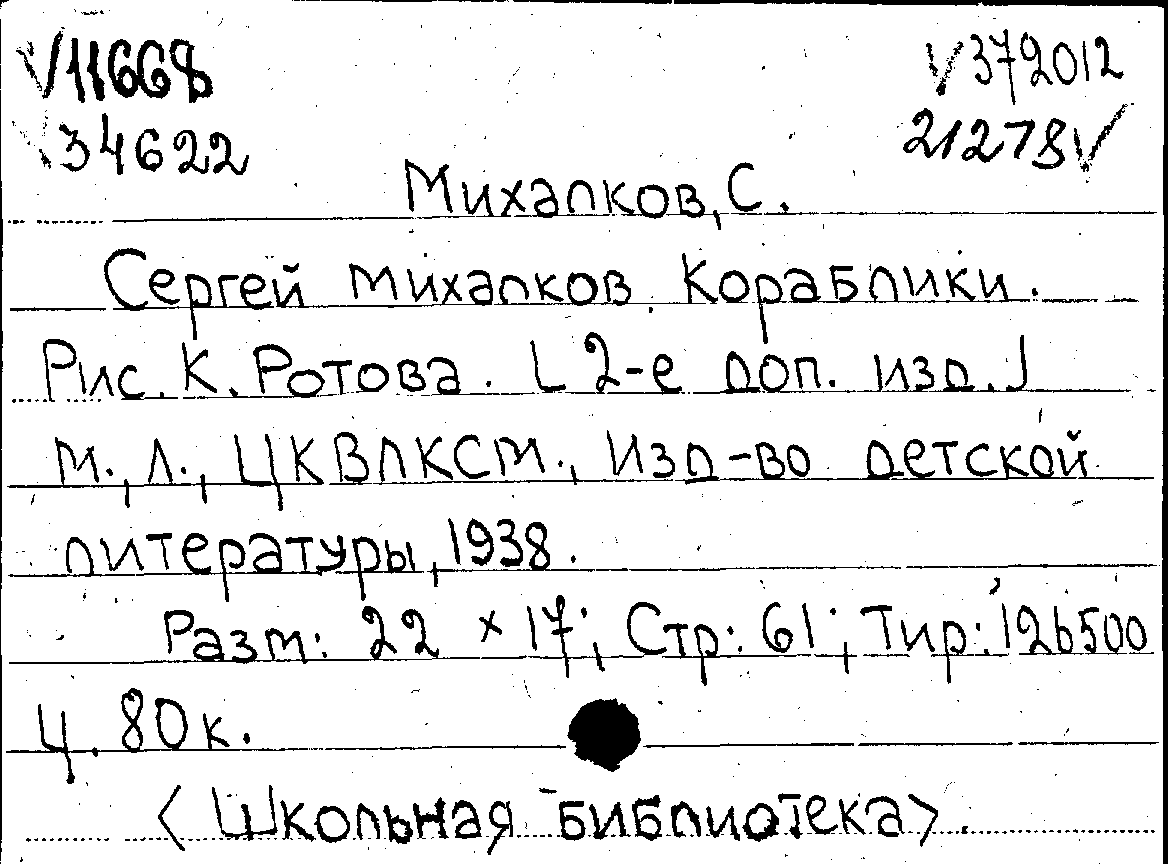 √11668 √372012
√34622 21278√
Михалков, С.
Сергей Михалков. Кораблики.
Рис. К. Ротова. [2-е доп. изд.]
М., Л., ЦКВЛКСМ., Изд-во детской
литературы, 1938.
Разм: 22 x 17; Стр: 61; Тир: 126500
Ц. 80 к.
<Школьная библиотека>.